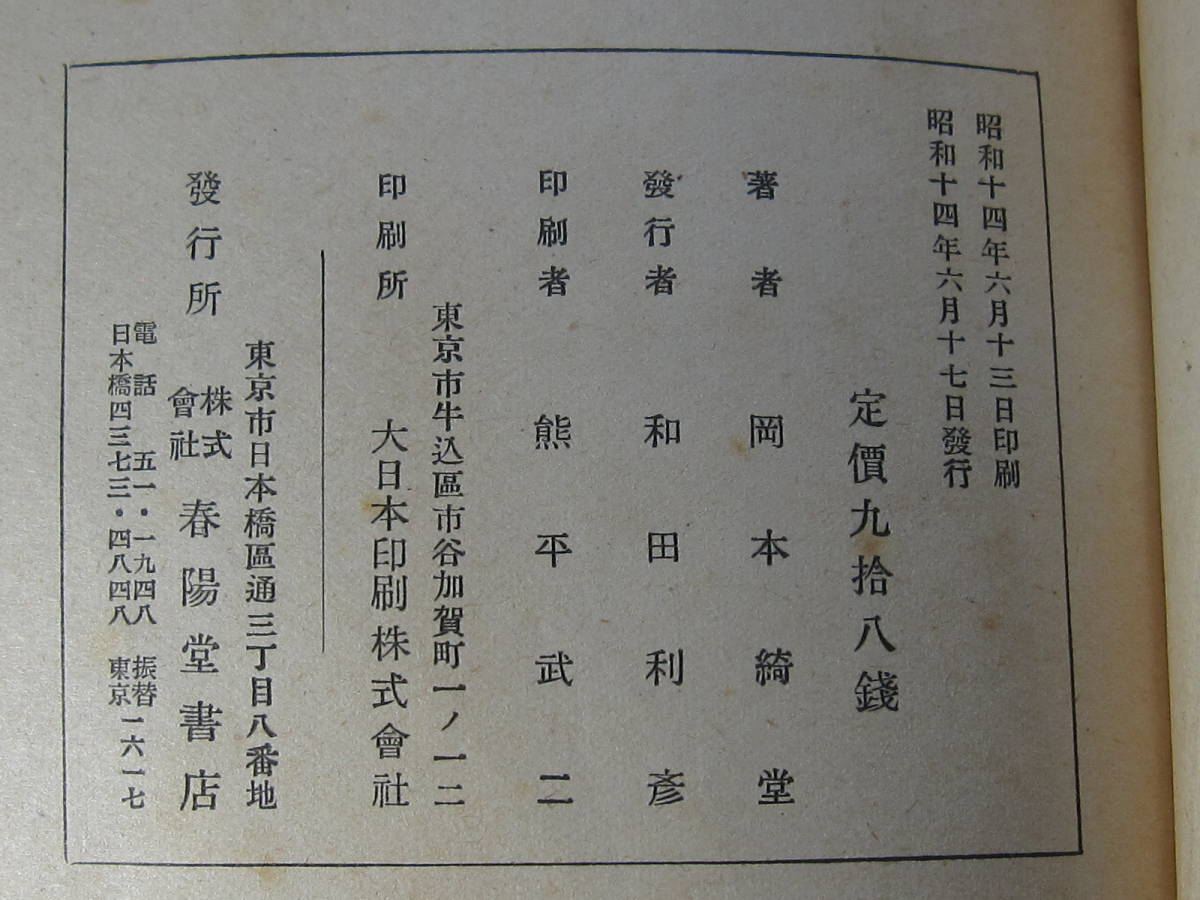 昭和十四年六月十三日印刷
昭和十四年六月十七日發行
定價九拾八錢
著者 岡本綺堂
發行者 和田利彥
印刷者 熊平武二
東京市牛込區市谷加賀町一ノ一二
印刷所 大日本印刷株式會社
東京市日本橋區通三丁目八番地
發行所 株式會社 春陽堂書店
電話 五一・一九四八 振替
日本橋四三七三・四八四八 東京一六一七